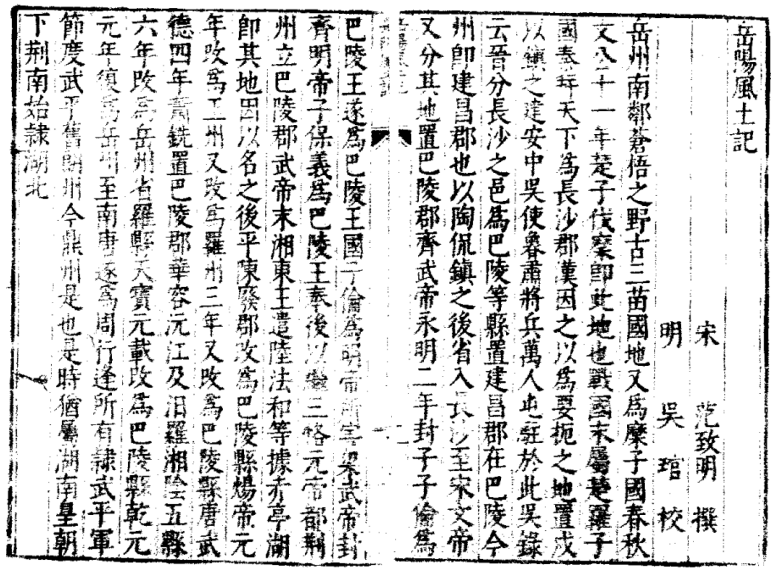 岳陽風土記
宋 范致明 撰
明 吳琯 校
岳州南鄰蒼梧之野古三苗國地又為麇子國春秋
文公十一年楚子伐麇即此地也戰國末屬楚羅子
國秦并天下為長沙郡漢因之以為要扼之地置戍
以鎮之建安中吳使魯肅將兵萬人屯駐於此吳錄
云晉分長沙之邑為巴陵等縣置建昌郡在巴陵今
州即建昌郡也以陶侃鎮之後省入長沙至宋文帝
又分其地置巴陵郡齊武帝永明二年封子子倫為
巴陵王遂為巴陵王國子倫為明帝所害梁武帝封
齊明帝子保義為巴陵王奉後以三恪元帝都荆
州立巴陵郡武帝末湘東王遣陸法和等據赤亭湖
即其地因以名之後平陳廢郡改為巴陵縣煬帝元
年改為工州又改為羅州三年又改為巴陵縣唐武
德四年蕭銑置巴陵郡華容沅江及汨羅湘陰五縣
六年改為岳州省羅縣天寶元載改為巴陵縣乾元
元年復為岳州至南唐遂為周行逢所有隸武平軍
節度武平舊朗州今鼎州是也是時猶屬湖南皇朝
下荆南始隸湖北